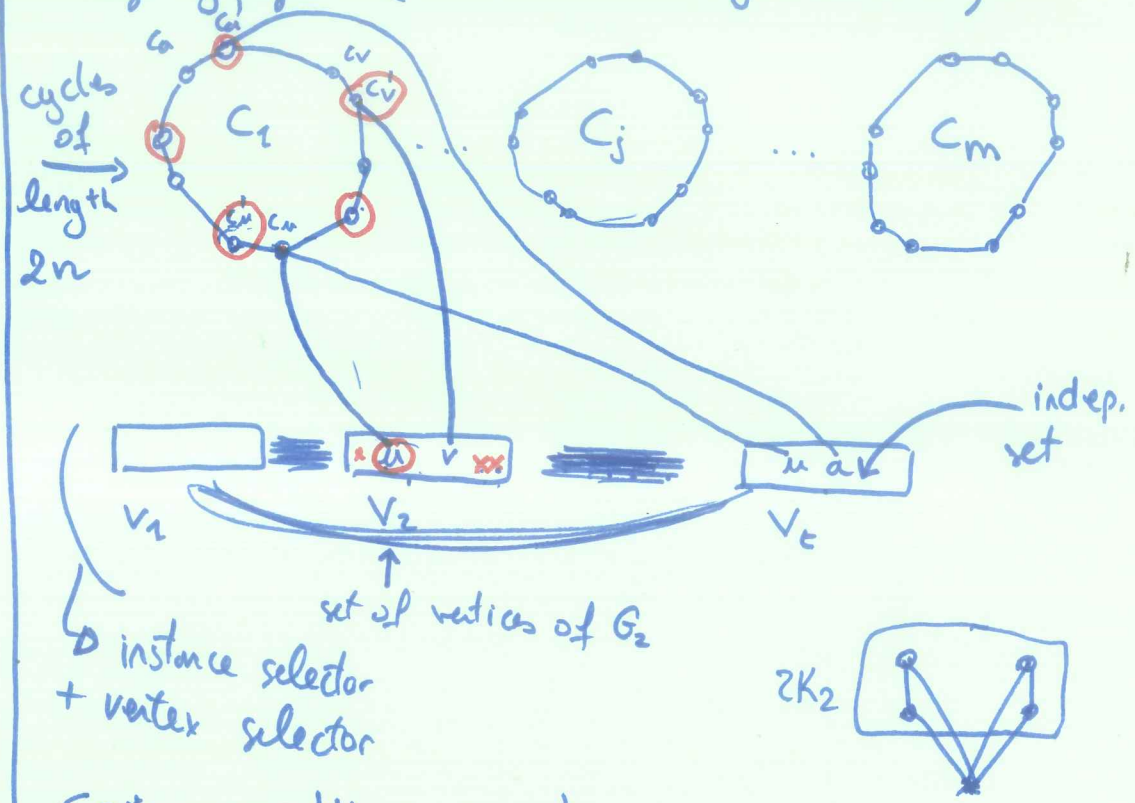 cycles
of
length
2n
Ca
Ca'
Cv
Cv'
C1
Cu'
Cu
...
Cj
...
Cm
u v xx
u a v
indep.
set
V1
V2
Vt
set of vertices of G2
instance selector
+ vertex selector
2K2